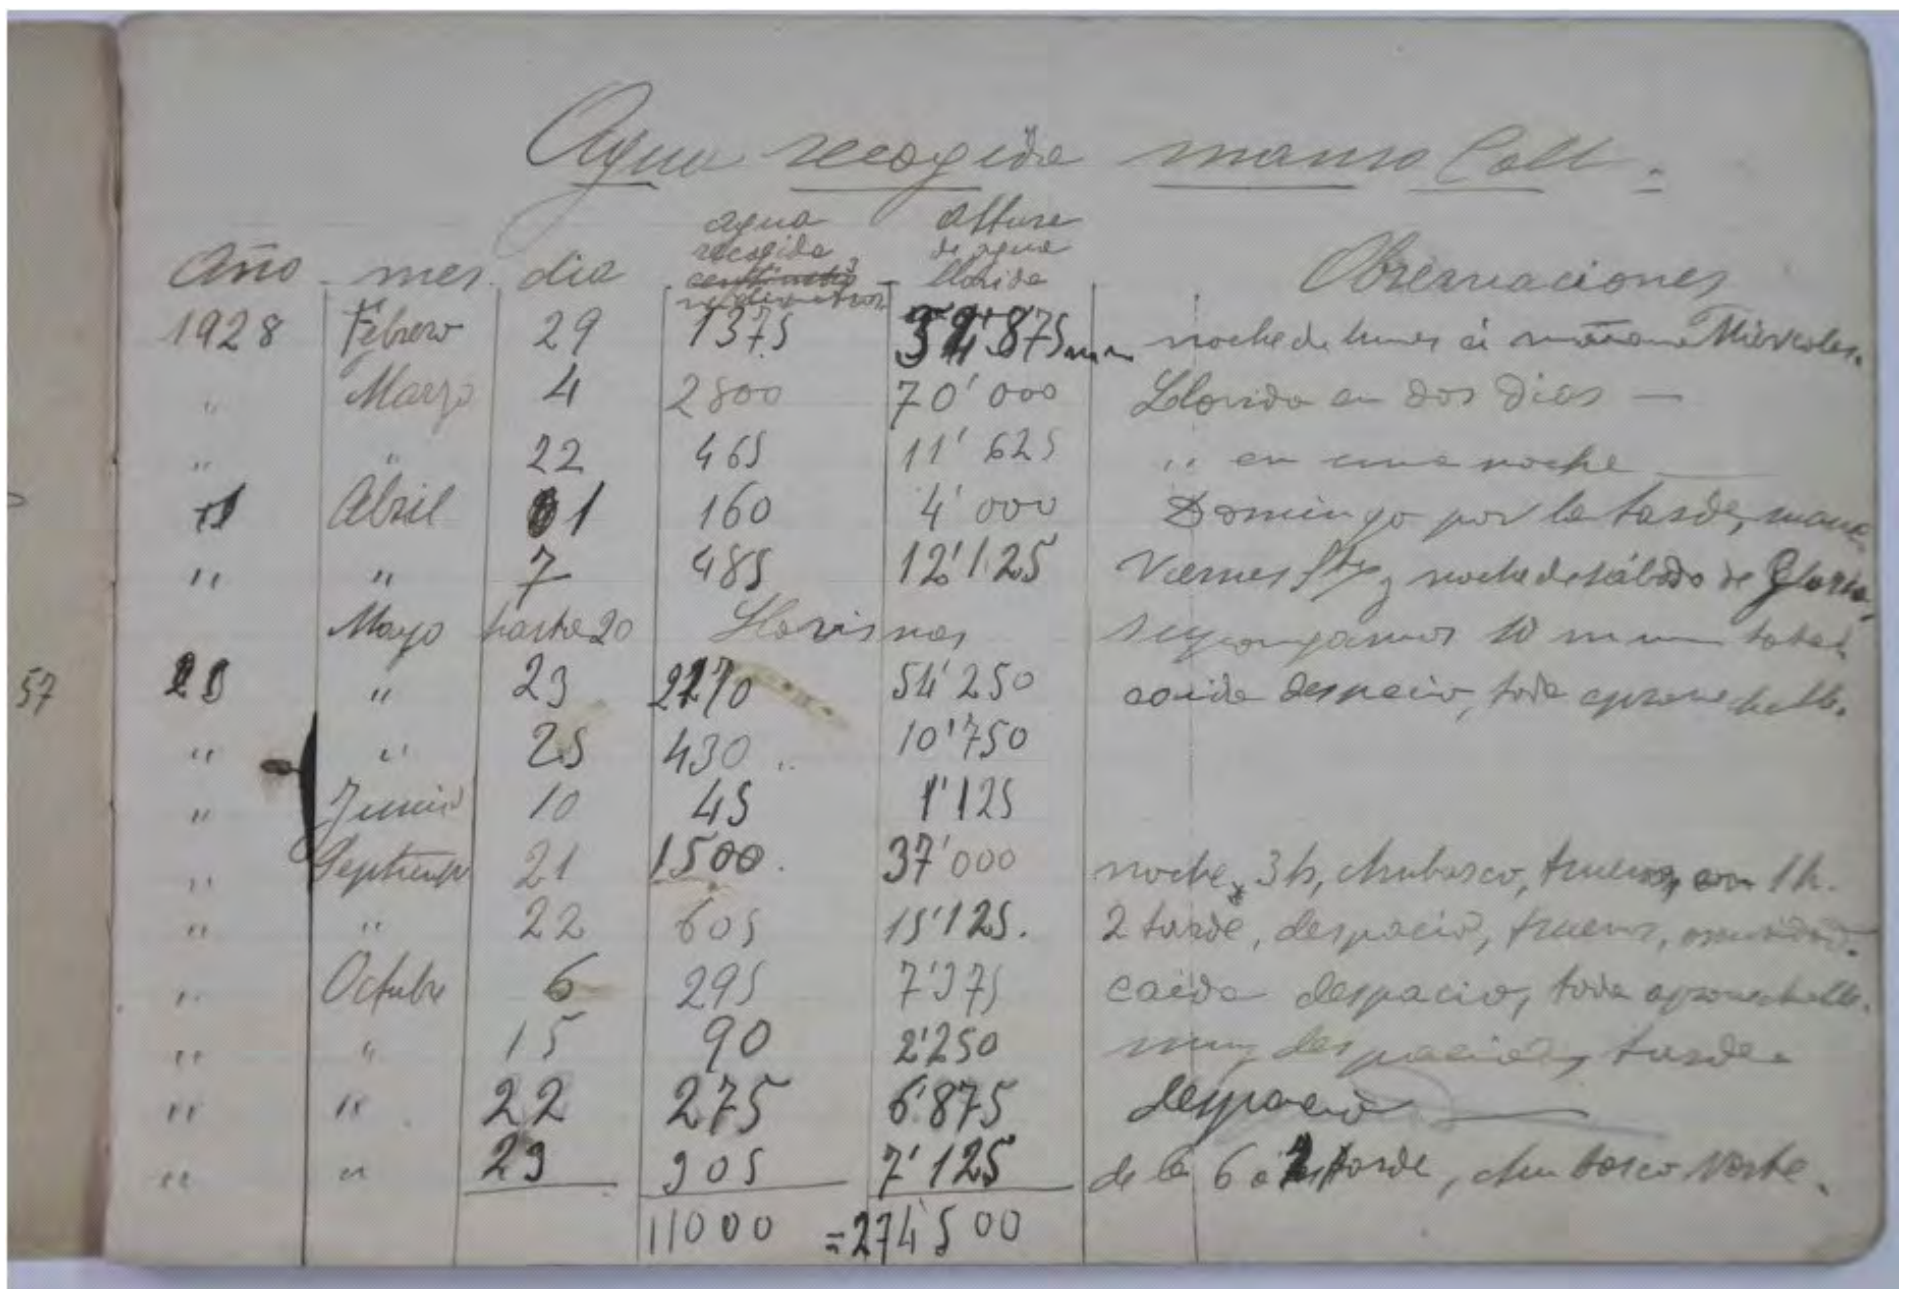 Agua recogida manso Coll.
Año mes dia agua recogida altura de agua llovida Observaciones
1928 Febrero 29 1375 34'875 mm noche de lunes á mañana Miércoles.
" Marzo 4 2800 70'000 Llovida en dos dias —
" " 22 465 11'625 " en una noche —
" Abril 1 160 4'000 Domingo por la tarde,
" " 7 485 12'125 Viernes Sto y noche de sábado de Gloria,
Mayo hasta 20 Lloviznas supongamos 10 mm total
57
28 " 23 2270 54'250 caida despacio, toda aprovechable.
" " 25 430 10'750
" Junio 10 45 1'125
" Septiembre 21 1500. 37'000 noche, 3 h, chubasco, truenos, 1 h.
" " 22 605 15'125. 2 tarde, despacio, truenos,
" Octubre 6 295 7'375 caida despacio, toda aprovechable.
" " 15 90 2'250 muy despacio, tarde
" " 22 275 6'875 despacio —
" " 23 305 7'125 de la 6 a 7 tarde, chubasco Norte.
11000 = 274'500